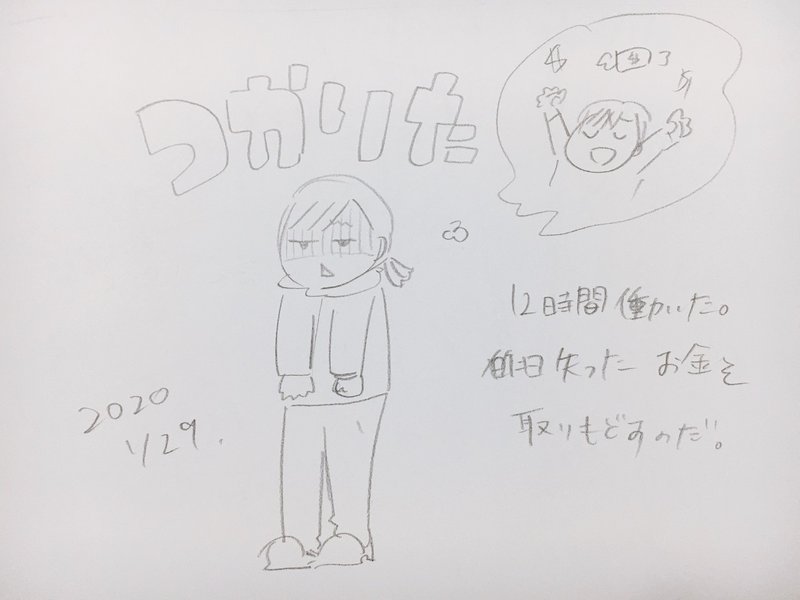 つかりた
12時間働いた。
昨日失ったお金を
取りもどすのだ!。
2020
1/29.